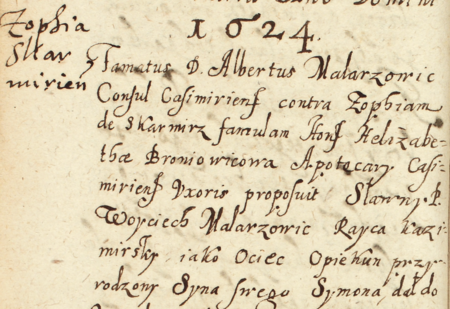 1624.
Zophia
Skar
mirien
Famatus D. Albertus Malarzowic
Consul Casimirienß contra Zophiam
de Skarmirz famulam Honß Helizabe-
thæ Broniowicowa Apotacary Casi-
mirienß Vxoris proposuit Slawny P.
Woyciech Malarzowic Rayca Kazi-
mirsky iako Ociec Opiekun przy-
rodzony Syna swego Symona, dał do